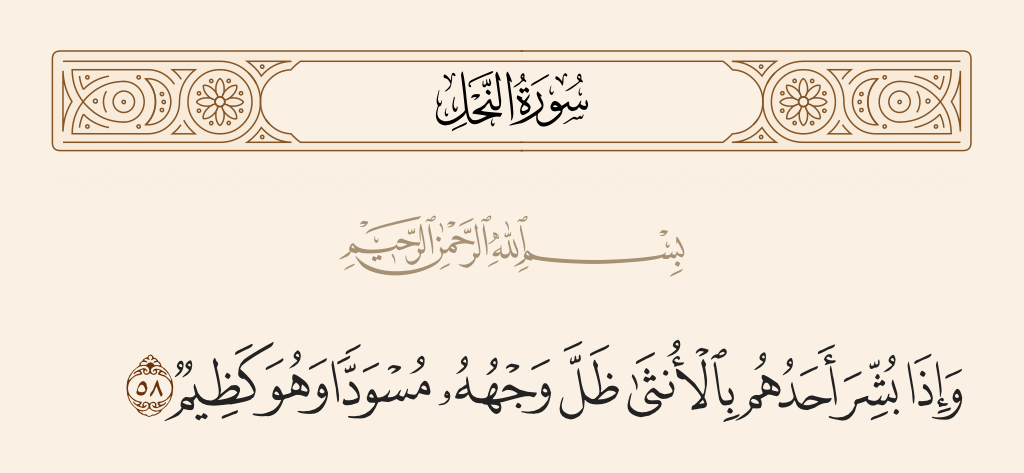 سُورَةُ النَّحْلِ
بِسْمِ ٱللَّهِ ٱلرَّحْمَٰنِ ٱلرَّحِيمِ
وَإِذَا بُشِّرَ أَحَدُهُم بِٱلْأُنثَىٰ ظَلَّ وَجْهُهُۥ مُسْوَدًّا وَهُوَ كَظِيمٌ ٥٨